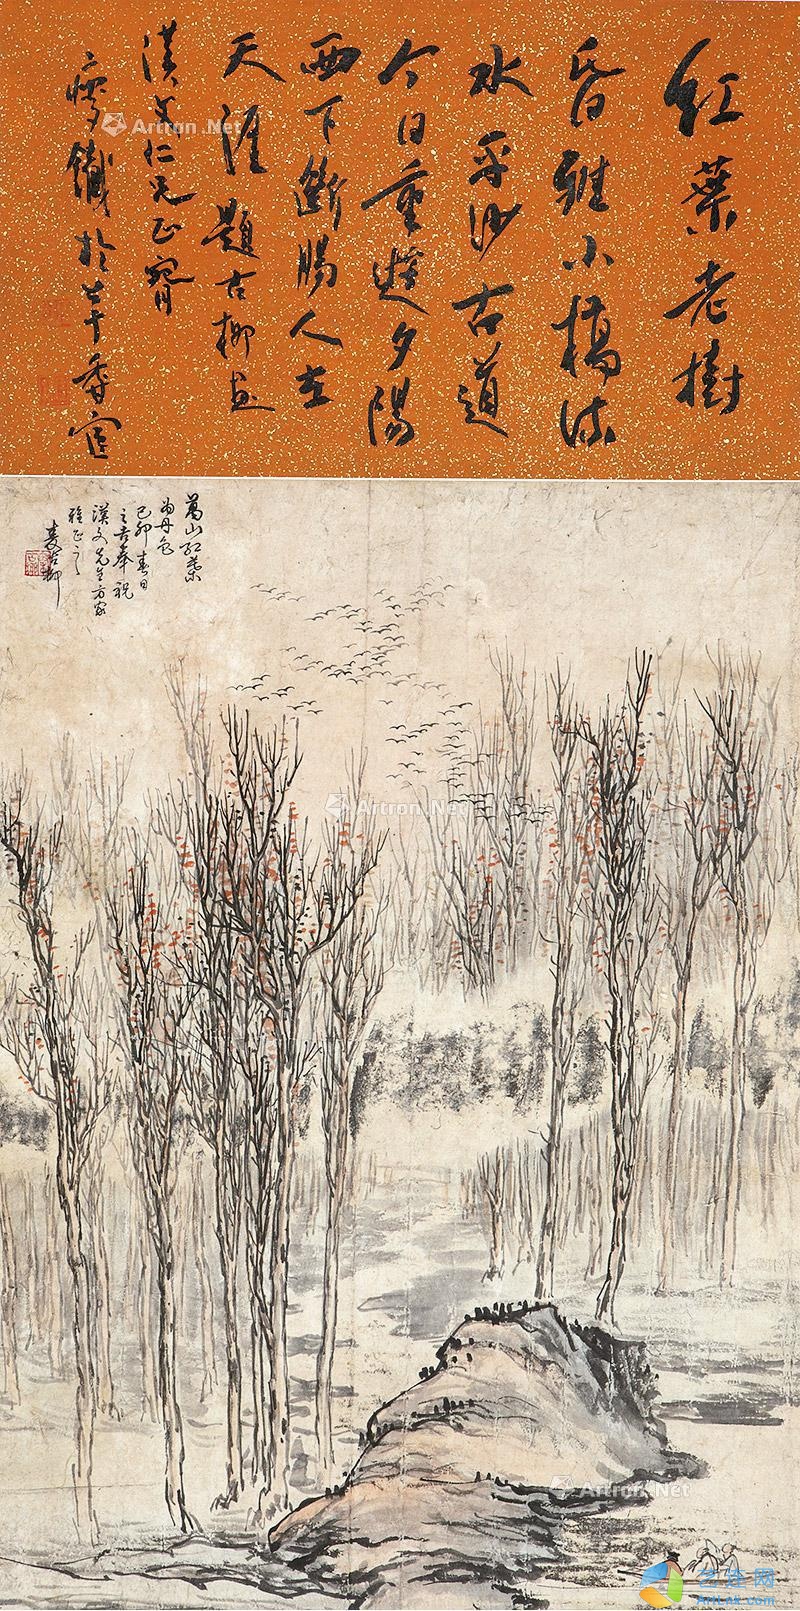 紅葉老樹
昏鴉小橋流
水平沙古道
今日重逢夕陽
西下斷腸人在
天涯 題古柳畫
漢文仁兄正腕
瘦鐵於千年香館
萬山紅葉
為丹色
己卯春日
之吉奉祝
漢文先生方家
雅正之
古柳
Artron.Net
Artron.Net
Artron.Net
艺鹿网
ArtLek.com